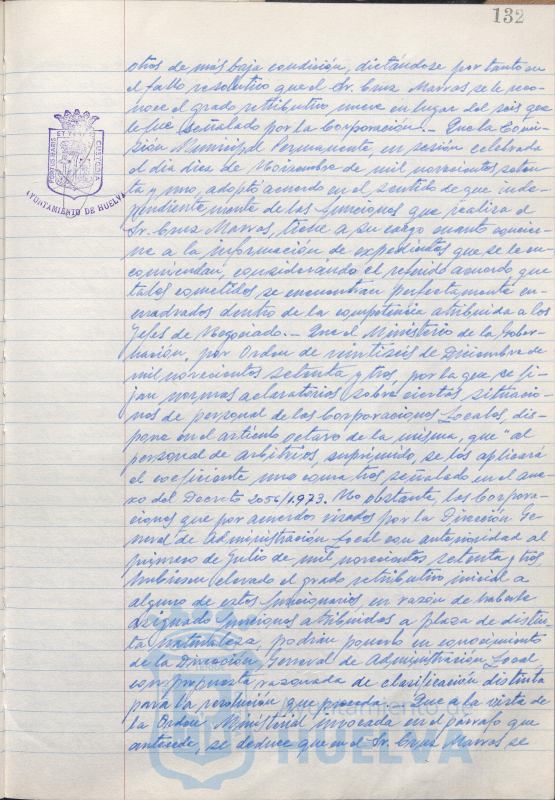 132
otros de más baja condición, dictándose por tanto en
el fallo resolutivo que el Sr. Cruz Marras, se le reco-
noce el grado retributivo nueve en lugar del seis que
le fue señalado por la Corporación.- Que la Comi-
sión Municipal Permanente, en sesión celebrada
el día diez de Noviembre de mil novecientos seten-
ta y uno, adoptó acuerdo en el sentido de que inde-
pendientemente de las funciones que realiza el
Sr. Cruz Marras, tiene a su cargo cuanto concier-
ne a la información de expedientes que se le en-
comiendan, considerando el referido acuerdo que
tales cometidos se encuentran perfectamente en-
cuadrados dentro de la competencia atribuida a los
Jefes de Negociado.- Que el Ministerio de la Gober-
nación, por Orden de veintiseis de Diciembre de
mil novecientos setenta y tres, por la que se fi-
jan normas aclaratorias sobre ciertas situacio-
nes de personal de las Corporaciones Locales, dis-
pone en el artículo octavo de la misma, que "al
personal de arbitrios, suprimido, se les aplicará
el coeficiente uno coma tres señalado en el ane-
xo del Decreto 2056/1.973. No obstante las Corpora-
ciones que por acuerdos visados por la Dirección Ge-
neral de Administración Local con anterioridad al
primero de Julio de mil novecientos setenta y tres
hubiesen elevado el grado retributivo inicial a
alguno de estos funcionarios en razón de haberle
asignado funciones atribuidas a plaza de distin-
ta naturaleza, podrán ponerlo en conocimiento
de la Dirección General de Administración Local
con propuesta razonada de clasificación distinta
para la resolución que proceda.- Que a la vista de
la Orden Ministerial invocada en el párrafo que
antecede, se deduce que en el Sr. Cruz Marras se
PORTUS MARIS ET TERRAE CUSTODIA
AYUNTAMIENTO DE HUELVA
HUELVA